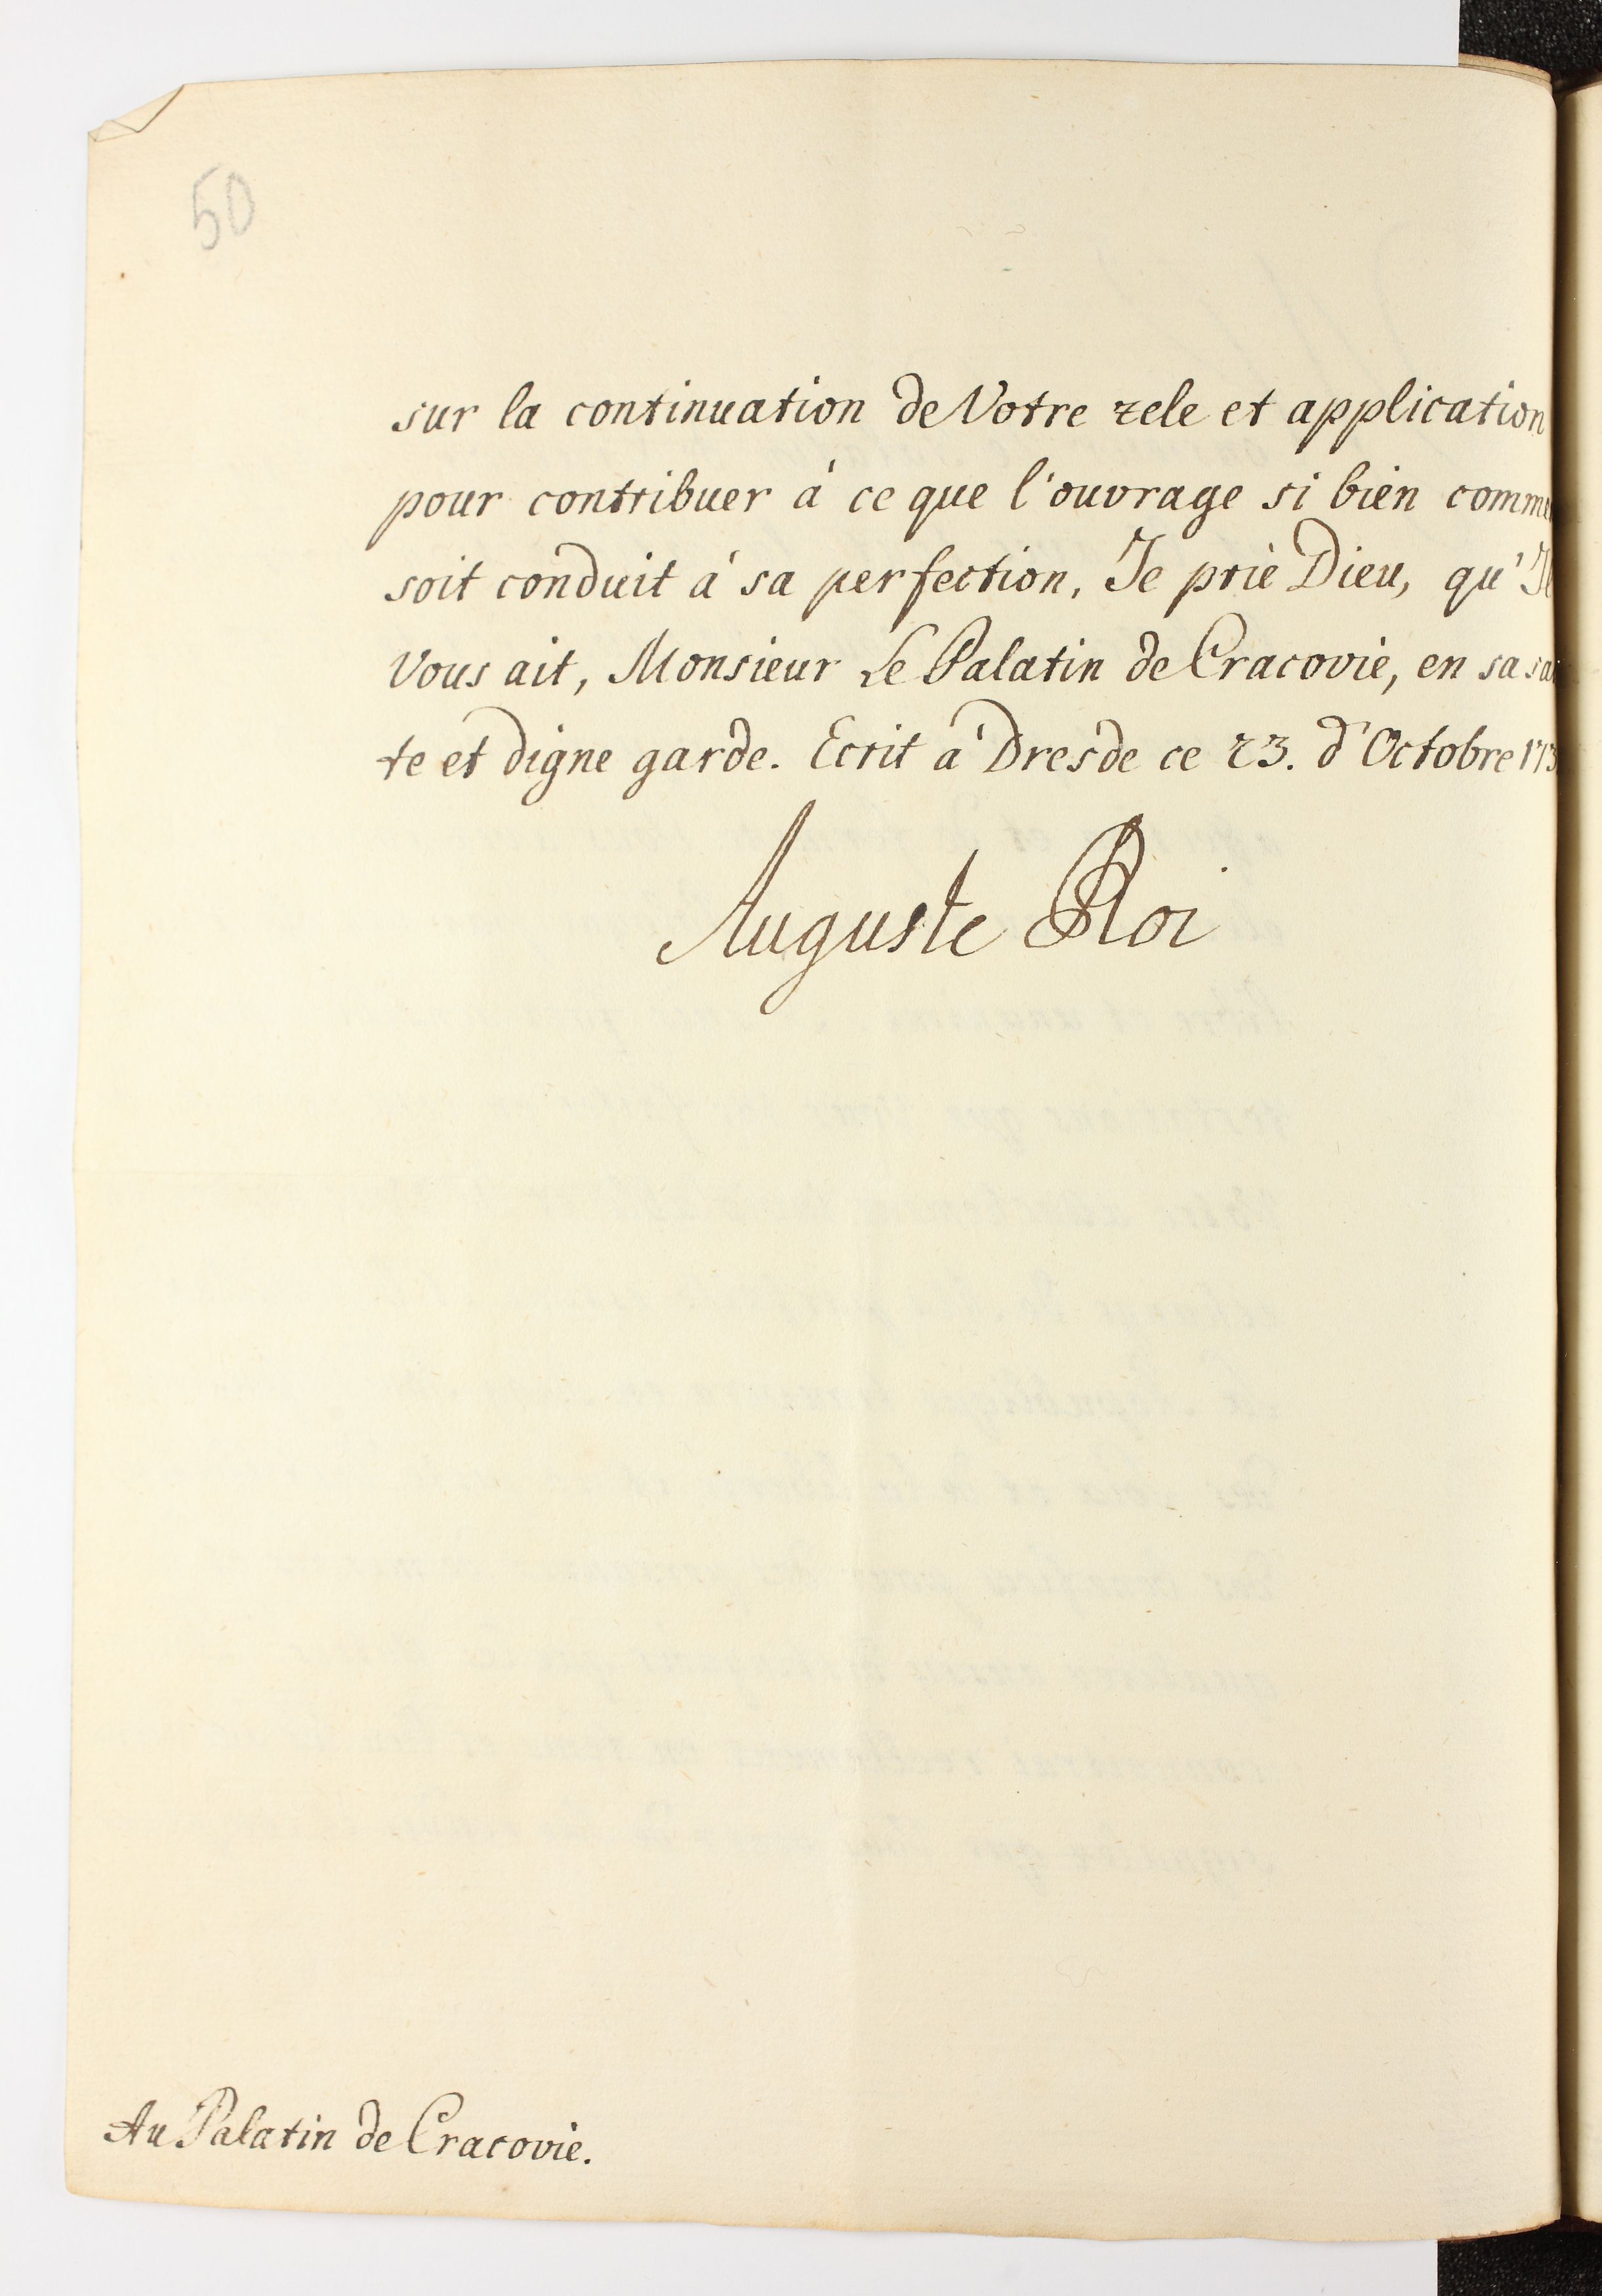 50
sur la continuation de Votre zele et application
pour contribuer à ce que l'ouvrage si bien comme
soit conduit à sa perfection, Je prie Dieu, qu'Il
Vous ait, Monsieur Le Palatin de Cracovie, en sa sai
te et digne garde. Ecrit à Dresde ce 23. d'Octobre 173
Auguste Roi
Au Palatin de Cracovie.